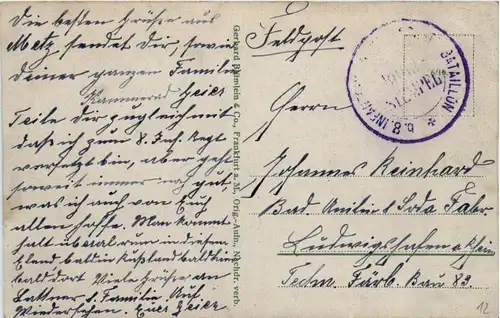 Die besten Grüße aus
Metz, sendet Dir, sowie
deiner ganzen Familie
Kammerad Heier
Teile dir zugleich mit
daß ich zum 8. Inf. Regt
versetzt bin, aber geht
soweit immer noch gut
was ich auch von Euch
allen hoffe. Man kommt
halt überal rum in diesem
Elend bald in Rußland bald hier
bald dort Viele Grüße an
Lattner s. Familie. Auf
Wiedersehen. Euer Heier
Gerhard Blümlein & Co., Frankfurt a. M. Org.-Aufn., Nachdr. verb.
Feldpost
BATAILLON * b. 8. INFANT
STEMPEL
Herrn
Johannes Reinhard
Bad. Anilin & Soda Fabr
Ludwigshafen a Rhein
Techn. Färb. Bau 83.
12